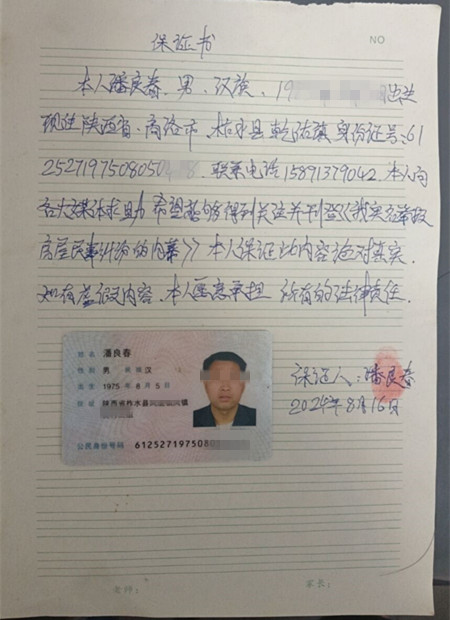 保证书
NO
本人潘良春,男、汉族、19 出生
现住陕西省、商洛市、柞水县乾佑镇身份证号:61
2527197508050 8.联系电话15891379042.本人向
各大媒体求助 希望能够得到关注并刊登《我实名举报
房屋民事纠纷的内幕》本人保证此内容绝对真实.
如有虚假内容.本人愿意承担 所有的法律责任.
姓名 潘良春
性别 男 民族 汉
出生 1975 年 8 月 5 日
住址 陕西省柞水县 镇
公民身份号码 6125271975080
保证人:潘良春
2024年8月16日
老师: 家长: